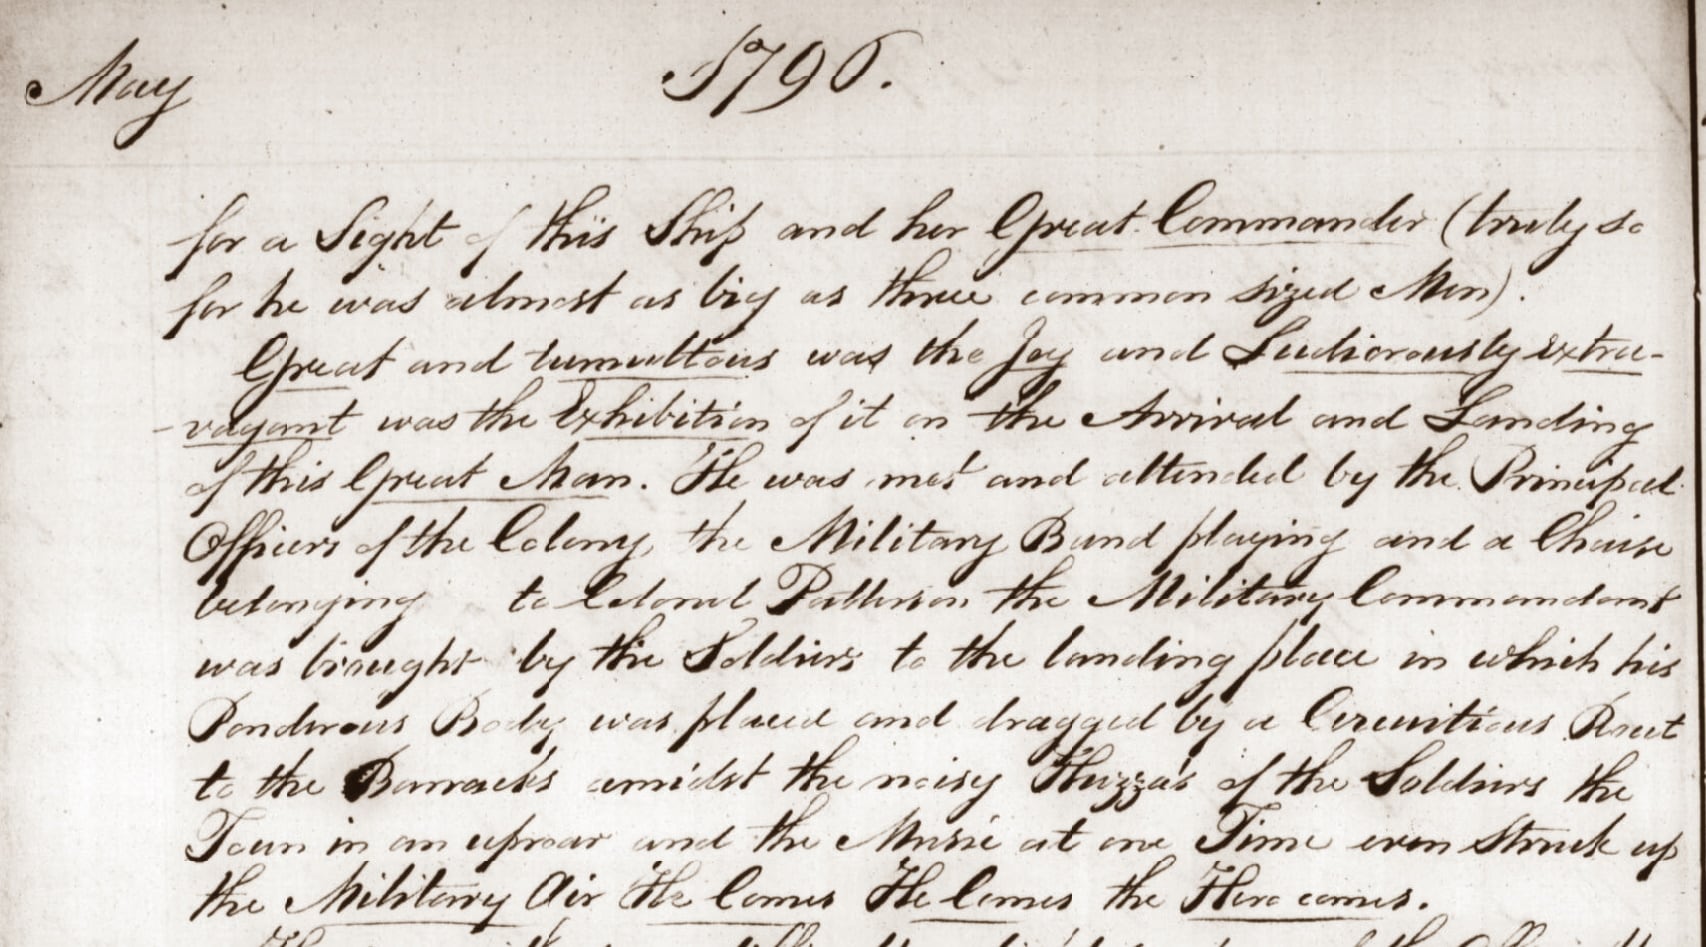 May
1796.
for a Sight of this Ship and her Great Commander (truly so
for he was almost as big as three common sized Men).
Great and tumultous was the Joy and Ludicrously extra-
-vagant was the Exhibition of it on the Arrival and Landing
of this Great Man. He was met and attended by the Principal
Officers of the Colony, the Military Band playing and a Chaise
belonging to Colonel Patterson the Military Commandant
was brought by the Soldiers to the landing place in which his
Ponderous Body was placed and dragged by a Circuitious Rout
to the Barracks amidst the noisy Huzza's of the Soldiers the
Town in an uproar and the Music at one Time even Struck up
the Military Air He Comes He Comes the Hero comes.